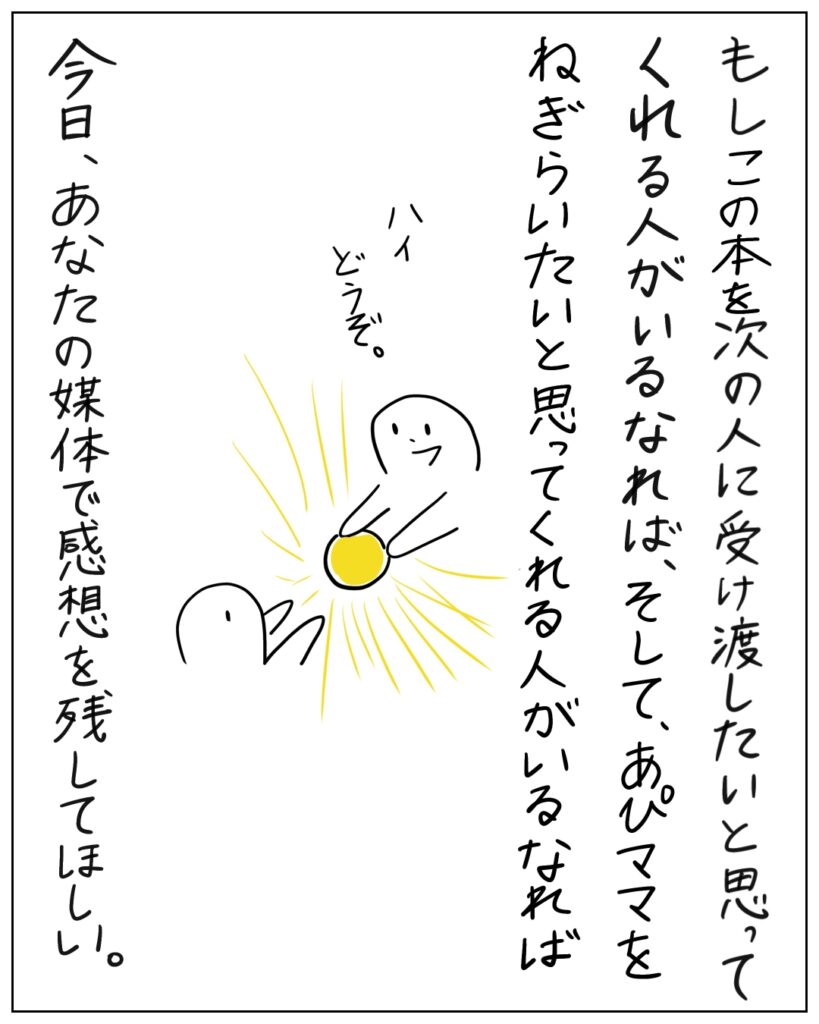 もしこの本を次の人に受け渡したいと思って
くれる人がいるなれば、そして、あぴママを
ねぎらいたいと思ってくれる人がいるなれば
ハイ
どうぞ。
今日、あなたの媒体で感想を残してほしい。